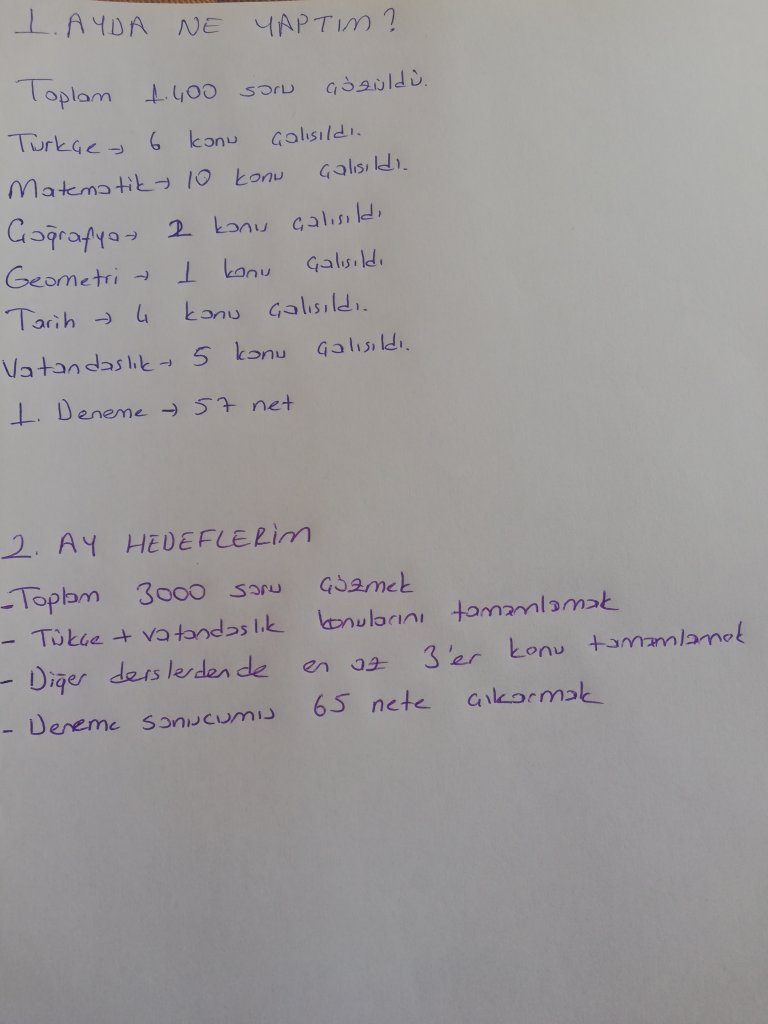 1. AYDA NE YAPTIM?
Toplam 1.400 soru çözüldü.
Türkçe → 6 konu çalışıldı.
Matematik → 10 konu çalışıldı.
Coğrafya → 2 konu çalışıldı
Geometri → 1 konu çalışıldı
Tarih → 4 konu çalışıldı.
Vatandaşlık → 5 konu çalışıldı.
1. Deneme → 57 net
2. AY HEDEFLERİM
- Toplam 3000 soru çözmek
- Tükçe + vatandaşlık konularını tamamlamak
- Diğer derslerdende en az 3'er konu tamamlamak
- Deneme sonucumu 65 nete çıkarmak